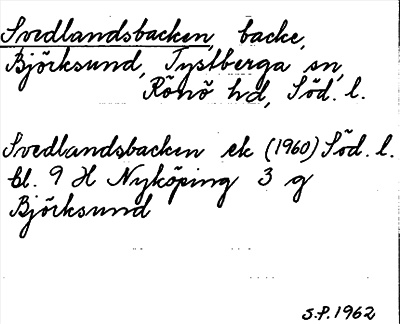 Svedlandsbacken, backe,
Björksund, Tystberga sn,
Rönö hd, Söd. l.
Svedlandsbacken ek (1960) Söd. l.
bl. 9 H Nyköping 3 g
Björksund
S.P. 1962